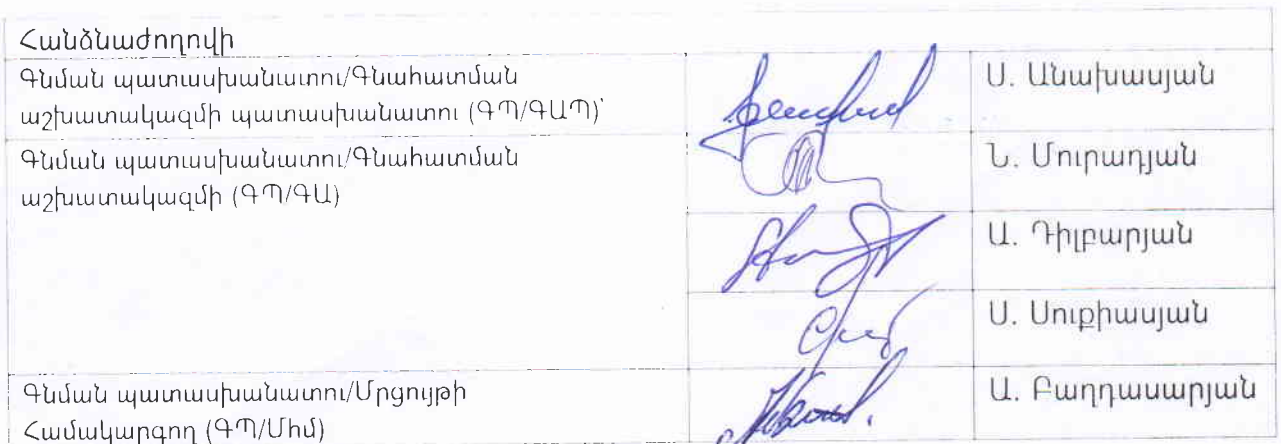 Հանձնաժողովի
Գնման պատասխանատու/Գնահատման
աշխատակազմի պատասխանատու (ԳՊ/ԳԱՊ)՝
Ս. Անախասյան
Գնման պատասխանատու/Գնահատման
աշխատակազմի (ԳՊ/ԳԱ)
Ն. Մուրադյան
Ա. Դիլբարյան
Ս. Սուքիասյան
Գնման պատասխանատու/Մրցույթի
Համակարգող (ԳՊ/Միմ)
Ա. Բաղդասարյան